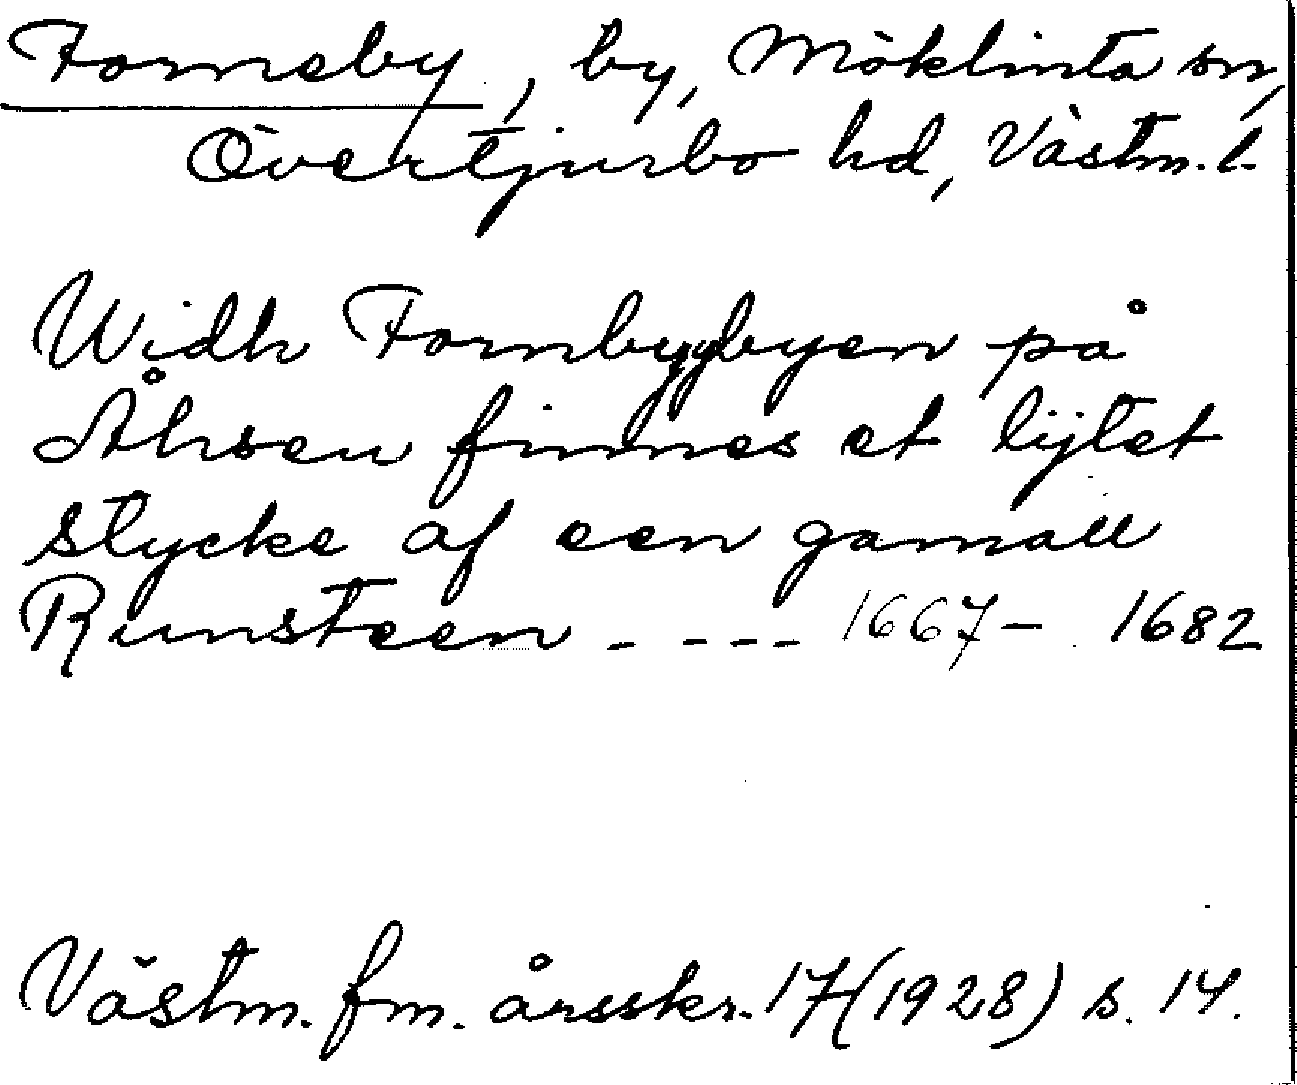 Forneby, by, Möklinta sn,
Övertjurbo hd, Västm. l.
Widh Fornbyybyen på
Åhsen finnes et lijtet
stycke af een gamall
Runsteen - - - - 1667 – 1682
Västm. fm. årsskr. 17 (1928) s. 14.